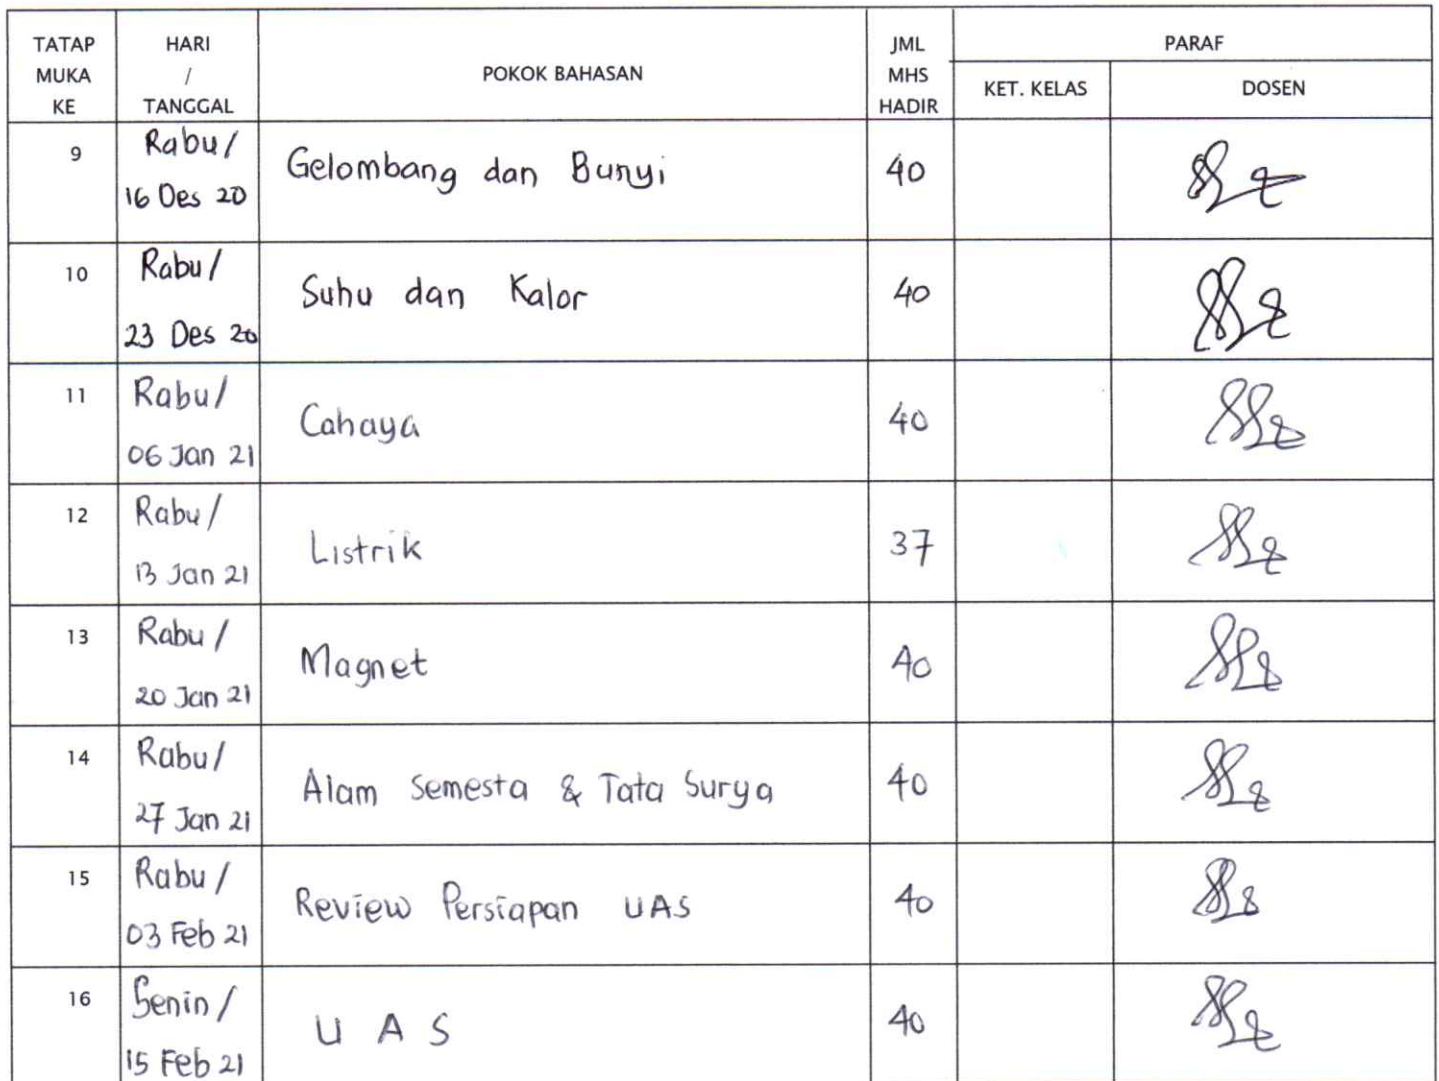 TATAP MUKA KE HARI / TANGGAL POKOK BAHASAN JML MHS HADIR PARAF
KET. KELAS DOSEN
9 Rabu/ 16 Des 20 Gelombang dan Bunyi 40
10 Rabu/ 23 Des 20 Suhu dan Kalor 40
11 Rabu/ 06 Jan 21 Cahaya 40
12 Rabu/ 13 Jan 21 Listrik 37
13 Rabu/ 20 Jan 21 Magnet 40
14 Rabu/ 27 Jan 21 Alam Semesta & Tata Surya 40
15 Rabu/ 03 Feb 21 Review Persiapan UAS 40
16 Senin/ 15 Feb 21 U A S 40